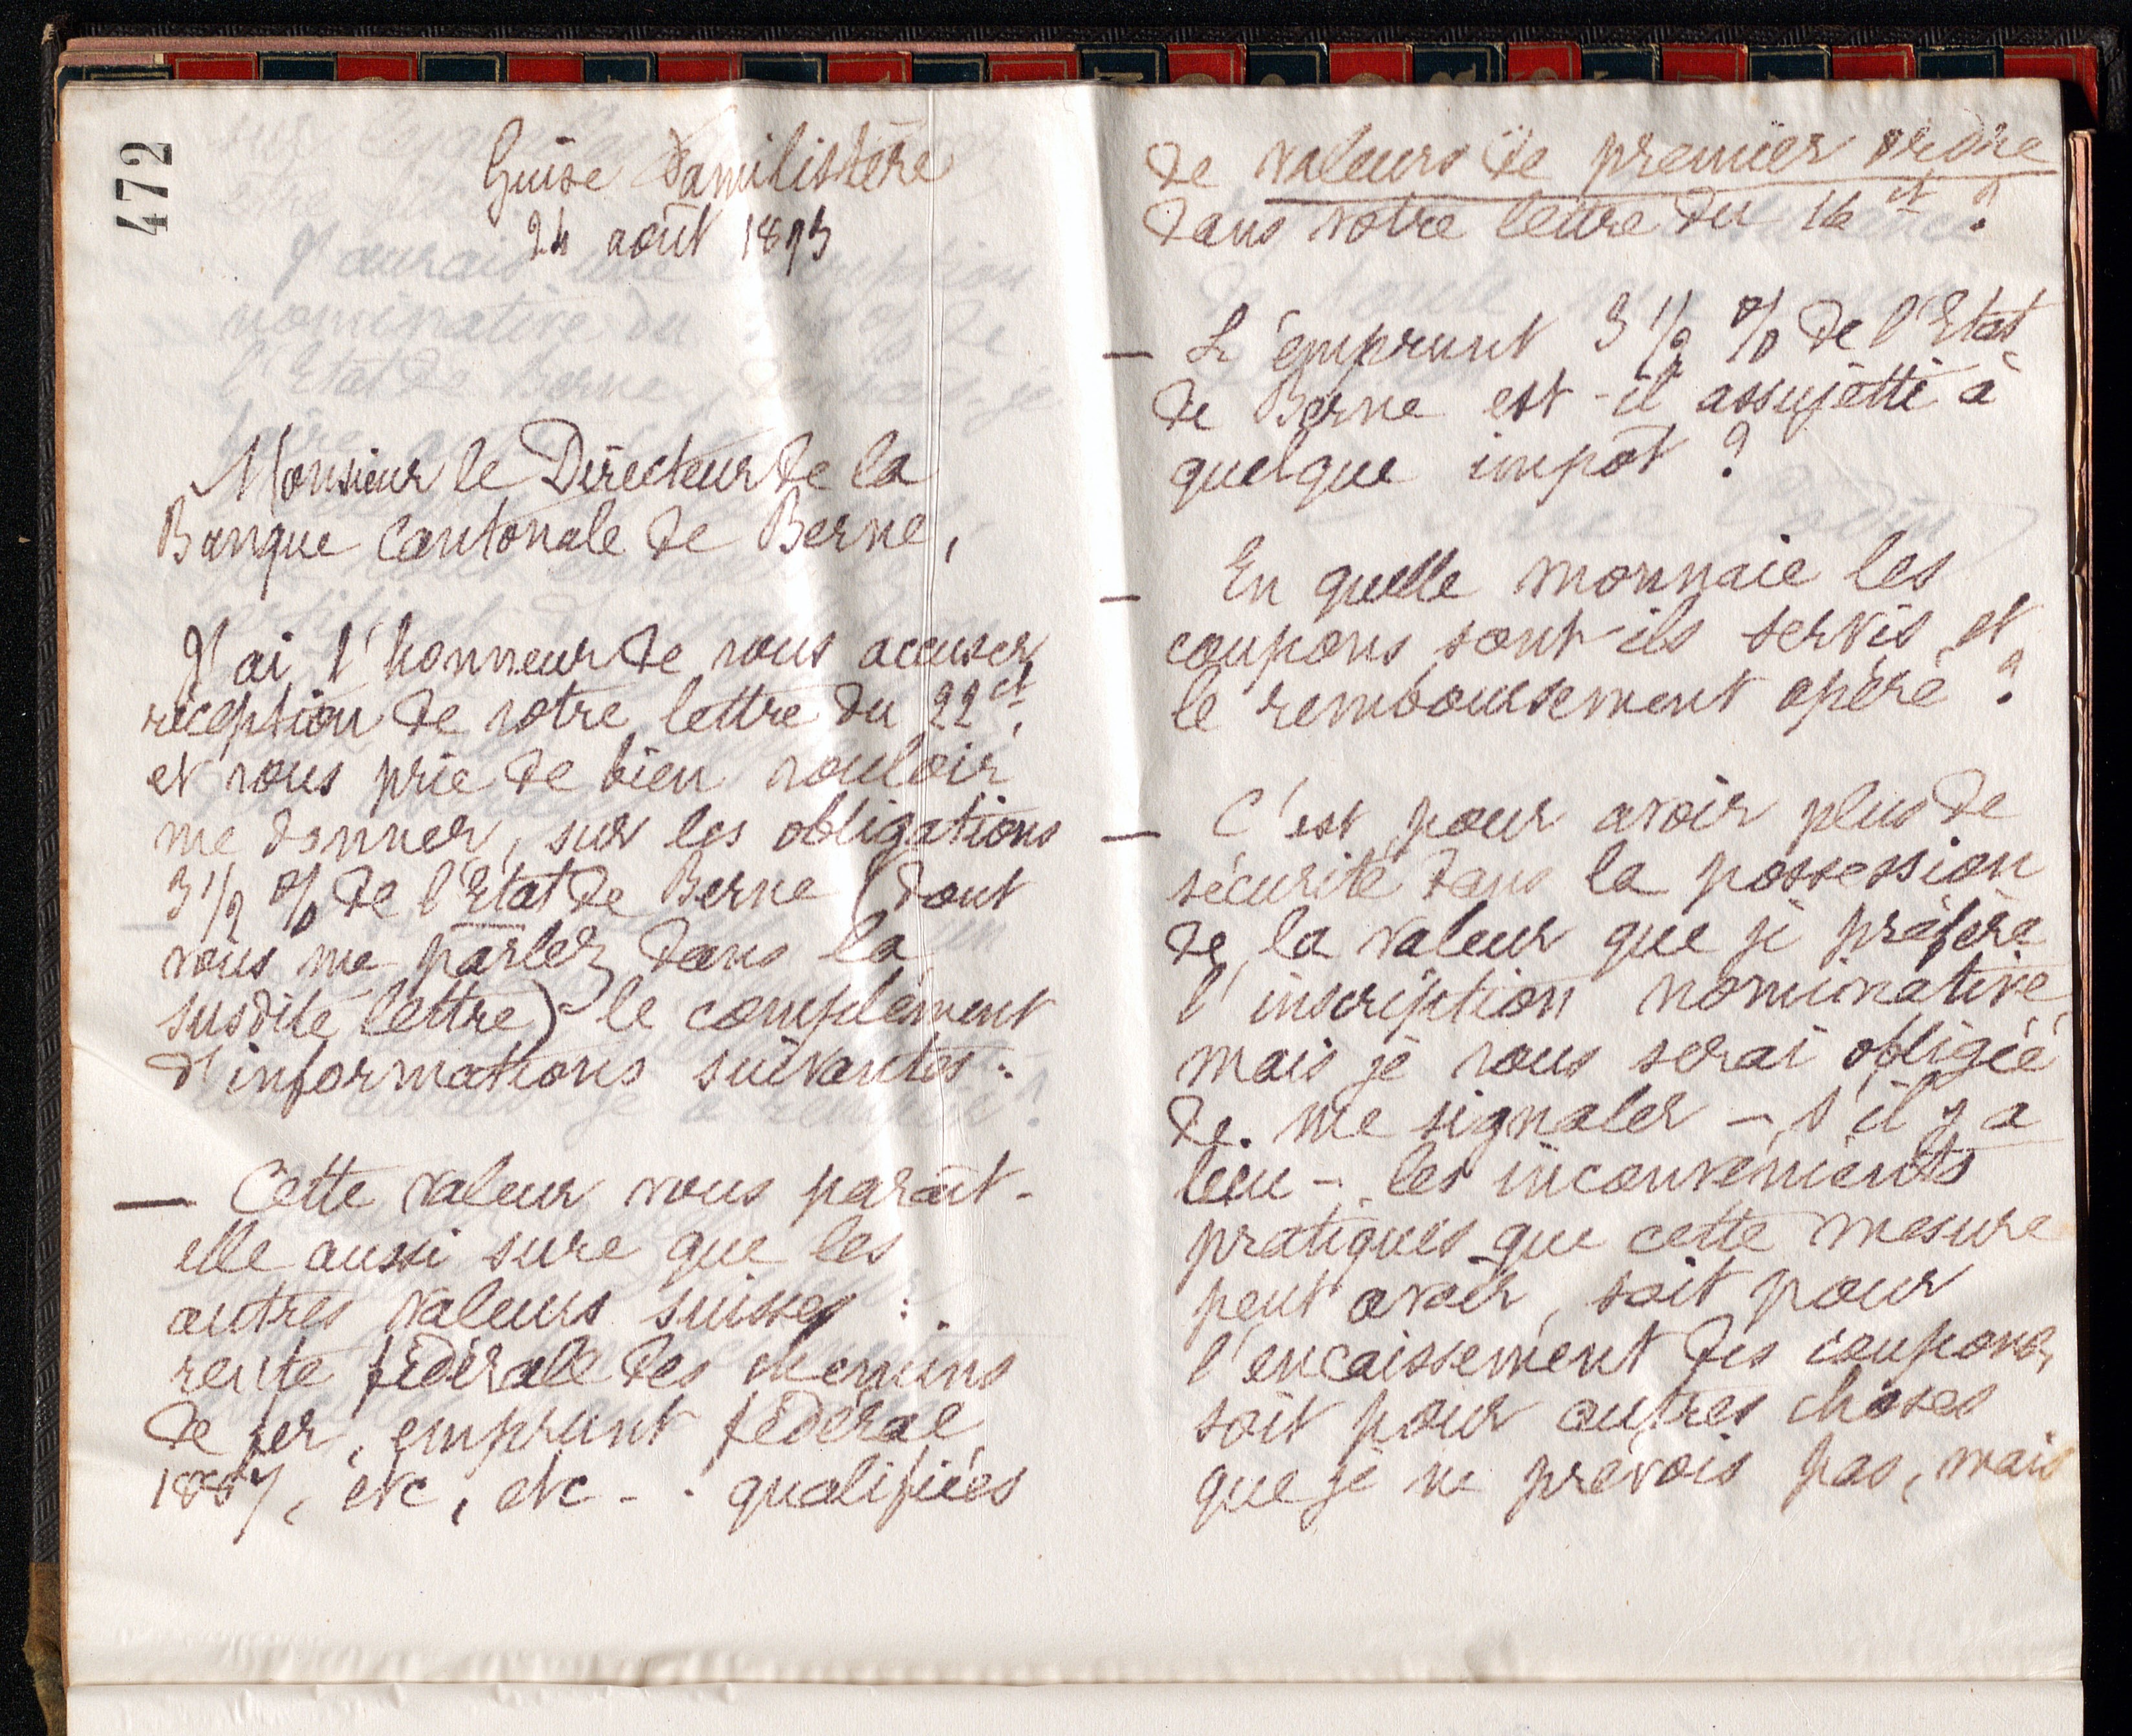 472
Guise Familistère
24 août 1893
Monsieur le Directeur de la
Banque Cantonale de Berne,
J'ai l'honneur de vous accuser
réception de votre lettre du 22 ct,
et vous prie de bien vouloir
me donner, sur les obligations
3 1/2 % de l'Etat de Berne (dont
vous me parlez dans la
susdite lettre) le complément
d'informations suivantes :
— Cette valeur vous paraît-
elle aussi sure que les
autres valeurs suisses :
rente fédérale des chemins
de fer, emprunt fédéral
1887, etc, etc - . qualifiées
de valeurs de premier ordre
dans votre lettre du 16 ct ?
— L'emprunt 3 1/2 % de l'Etat
de Berne est-il assujetti à
quelque impôt ?
— En quelle monnaie les
coupons sont-ils servis et
le remboursement opéré ?
— C'est pour avoir plus de
sécurité dans la possession
de la valeur que je préfère
l'inscription nominative,
mais je vous serai obligée
de me signaler - s'il y a
lieu - les inconvénients
pratiques que cette mesure
peut avoir, soit pour
l'encaissement des coupons,
soit pour autres choses
que je ne prévois pas, mais